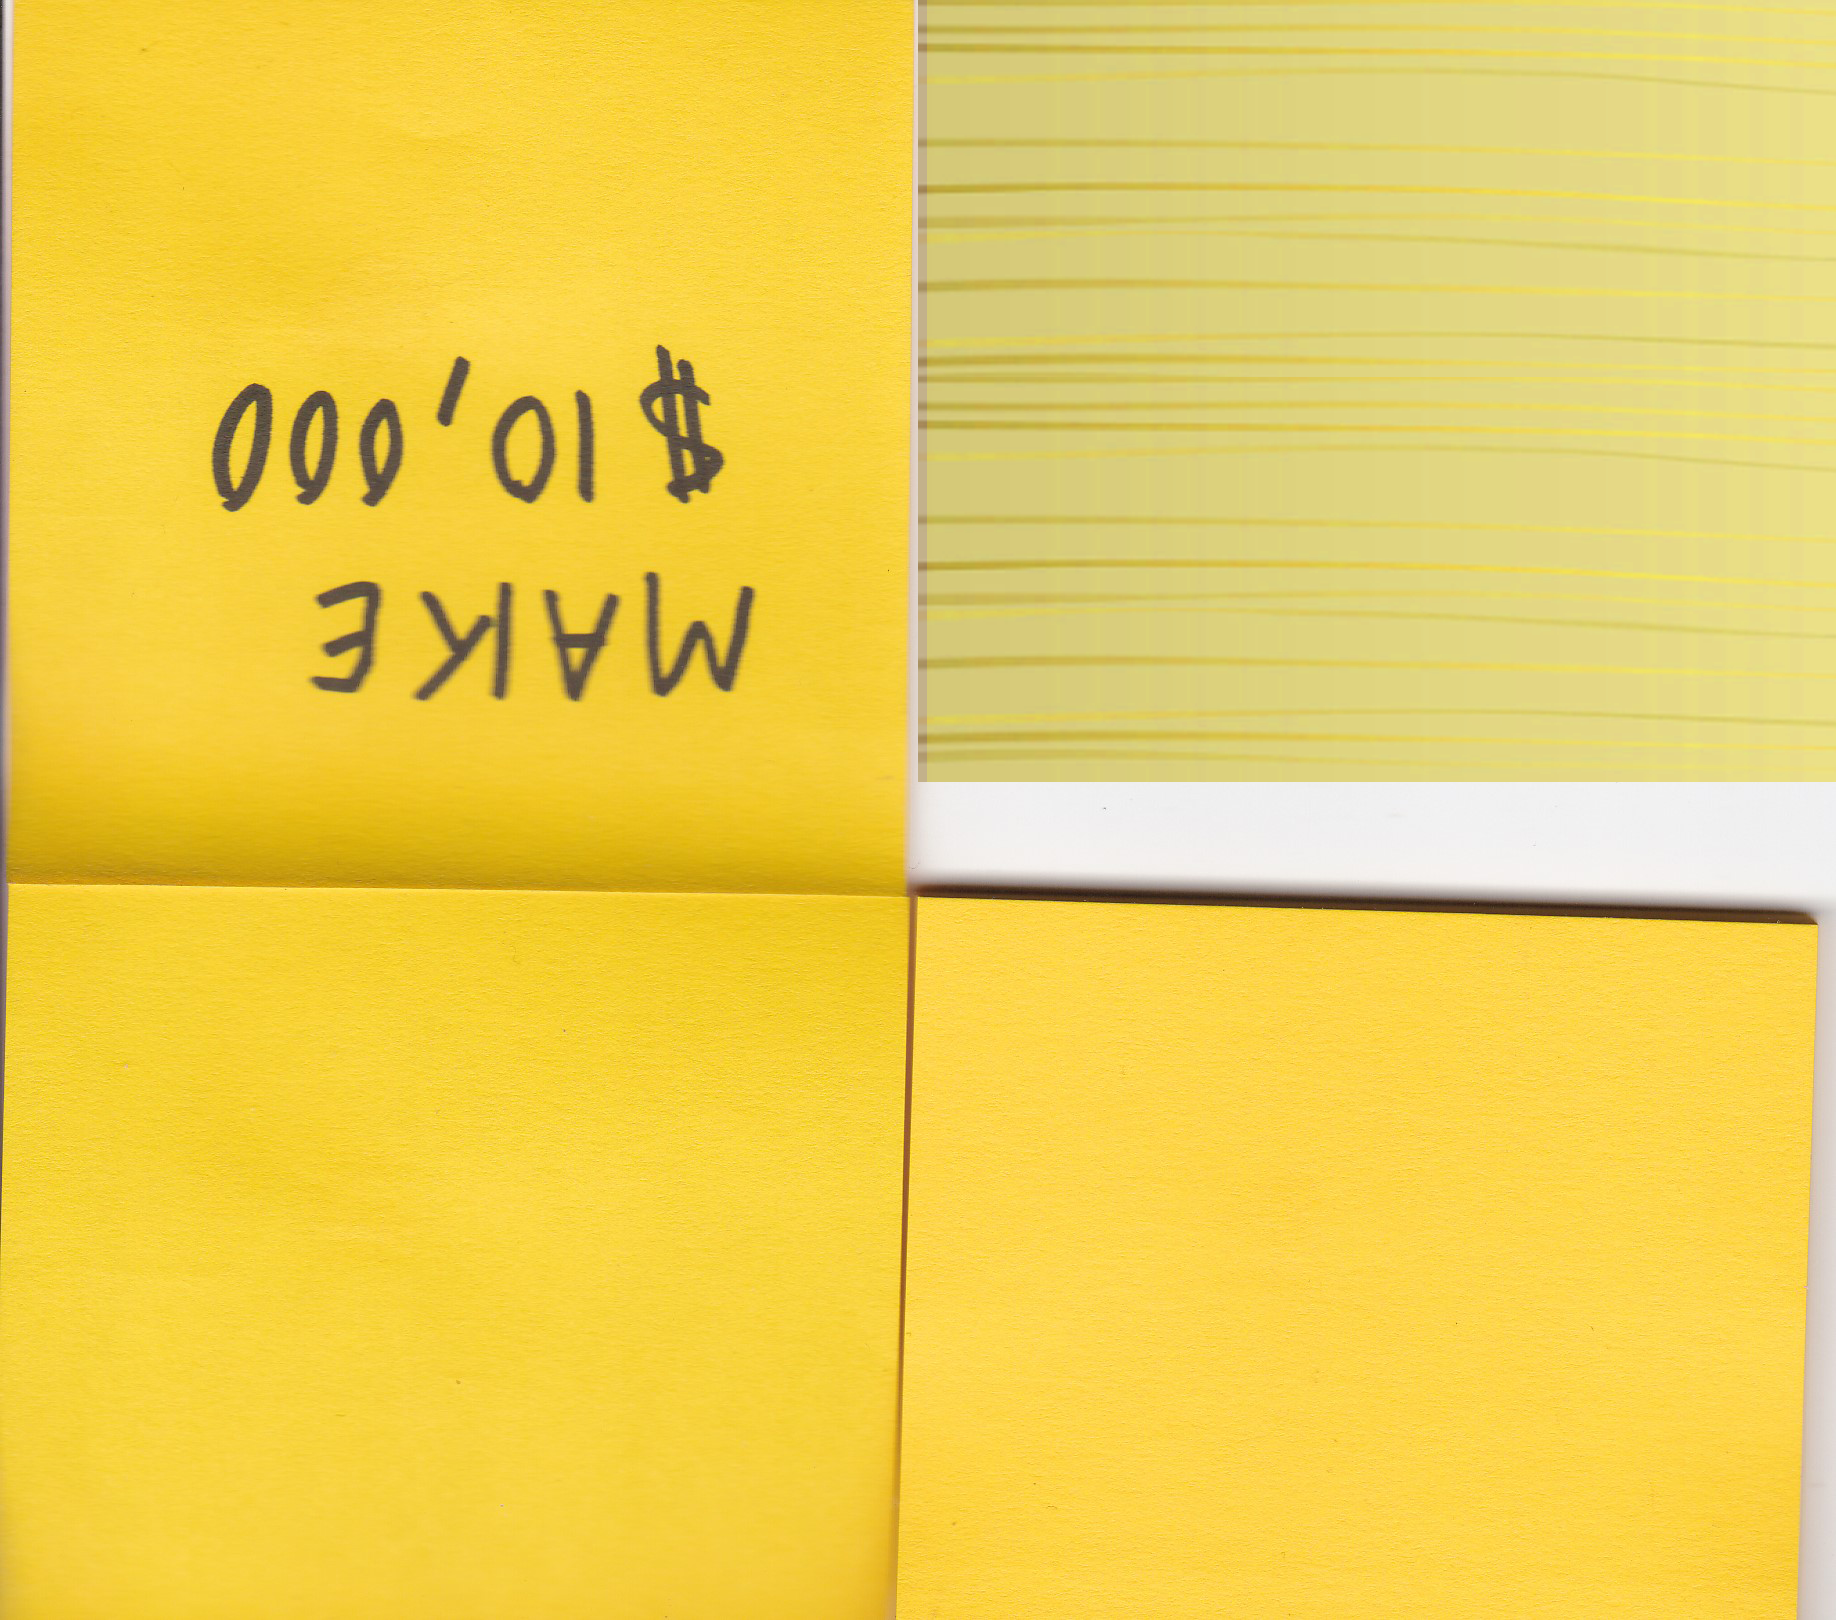 MAKE
$10,000